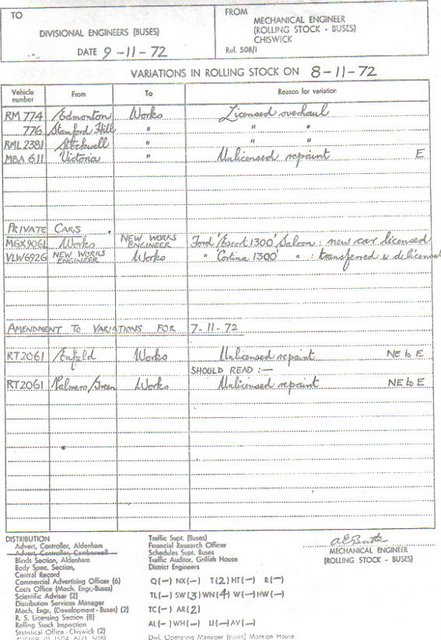 TO
DIVISIONAL ENGINEERS (BUSES)
DATE 9-11-72
FROM
MECHANICAL ENGINEER
(ROLLING STOCK - BUSES)
CHISWICK
Ref. 508/1
VARIATIONS IN ROLLING STOCK ON 8-11-72
Vehicle number From To Reason for variation
RM 774 Edmonton Works Licensed overhaul
776 Stamford Hill " " "
RML 2381 Stockwell " " "
MBA 611 Victoria " Unlicensed repaint E
PRIVATE CARS
MGX906L Works NEW WORKS ENGINEER Ford 'Escort 1300' Saloon : new car licensed
VLW692G NEW WORKS ENGINEER Works " 'Cortina 1300' " : transferred & delicensed
AMENDMENT TO VARIATIONS FOR 7-11-72
RT2061 Enfield Works Unlicensed repaint NE to E
SHOULD READ :—
RT2061 Palmers Green Works Unlicensed repaint NE to E
DISTRIBUTION
Advert. Controller, Aldenham
Advert. Controller, Camberwell
Blinds Section, Aldenham
Body Spec. Section,
Central Record
Commercial Advertising Officer (6)
Costs Office (Mech. Engr.-Buses)
Scientific Adviser (2)
Distribution Services Manager
Mech. Engr. (Development - Buses) (2)
R. S. Licensing Section (8)
Rolling Stock Inspection
Statistical Office - Chiswick (2)
Traffic Supt. (Buses)
Financial Research Officer
Schedules Supt. Buses
Traffic Auditor, Griffith House
District Engineers
Q(-) NX(-) T(2) HT(-) R(-)
TL(-) SW(3) WN(4) W(-) HW(-)
TC(-) AR(2)
AL(-) WH(-) U(-) AV(-)
Divl. Operating Manager (Buses) Mansion House
MECHANICAL ENGINEER
(ROLLING STOCK - BUSES)